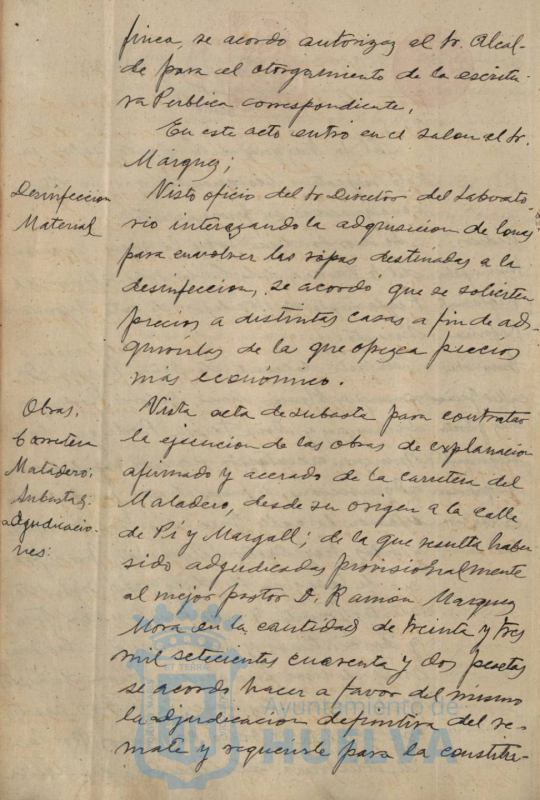 finca, se acordo autorizar al Sr. Alcal-
de para el otorgamiento de la escritu-
ra Publica correspondiente,
En este acto entró en el salon el Sr.
Márquez;
Desinfeccion
Material
Visto oficio del Sr Director del Laborato-
rio interezando la adquisicion de lonas
para envolver las ropas destinadas a la
desinfeccion, se acordó que se soliciten
precios a distintas casas a fin de ad-
quirirlas de la que ofrezca precios
más económico.
Obras.
Carretera
Matadero.
Subastas:
adjudicacio-
nes:
Vista acta de subasta para contratar
la ejecucion de las obras de explanacion
afirmado y acerado de la carretera del
Matadero, desde su origen a la calle
de Pí y Margall; de la que resulta haber
sido adjudicadas provisionalmente
al mejor postor D. Ramón Marquez
Mora en la cantidad de treinta y tres
mil setecientas cuarenta y dos pesetas
se acordó hacer a favor del mismo
la adjudicacion definitiva del re-
mate y requerirle para la constitu-
Ayuntamiento de
HUELVA